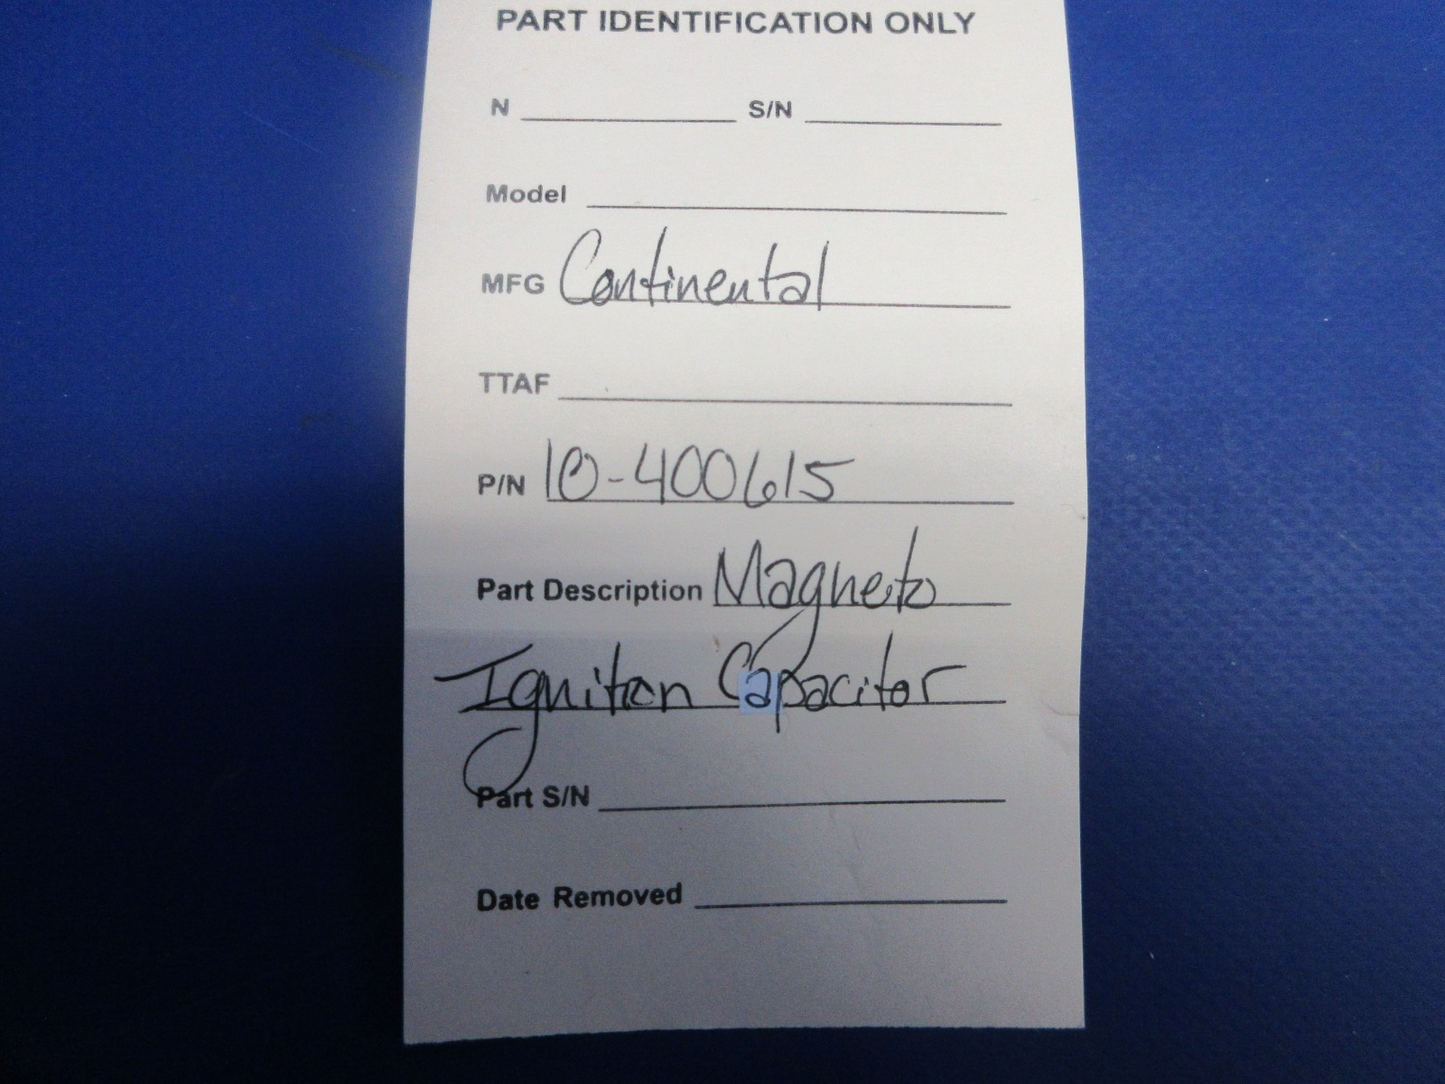 PART IDENTIFICATION ONLY
N S/N
Model
MFG Continental
TTAF
P/N 10-400615
Part Description Magneto
Ignition Capacitor
Part S/N
Date Removed